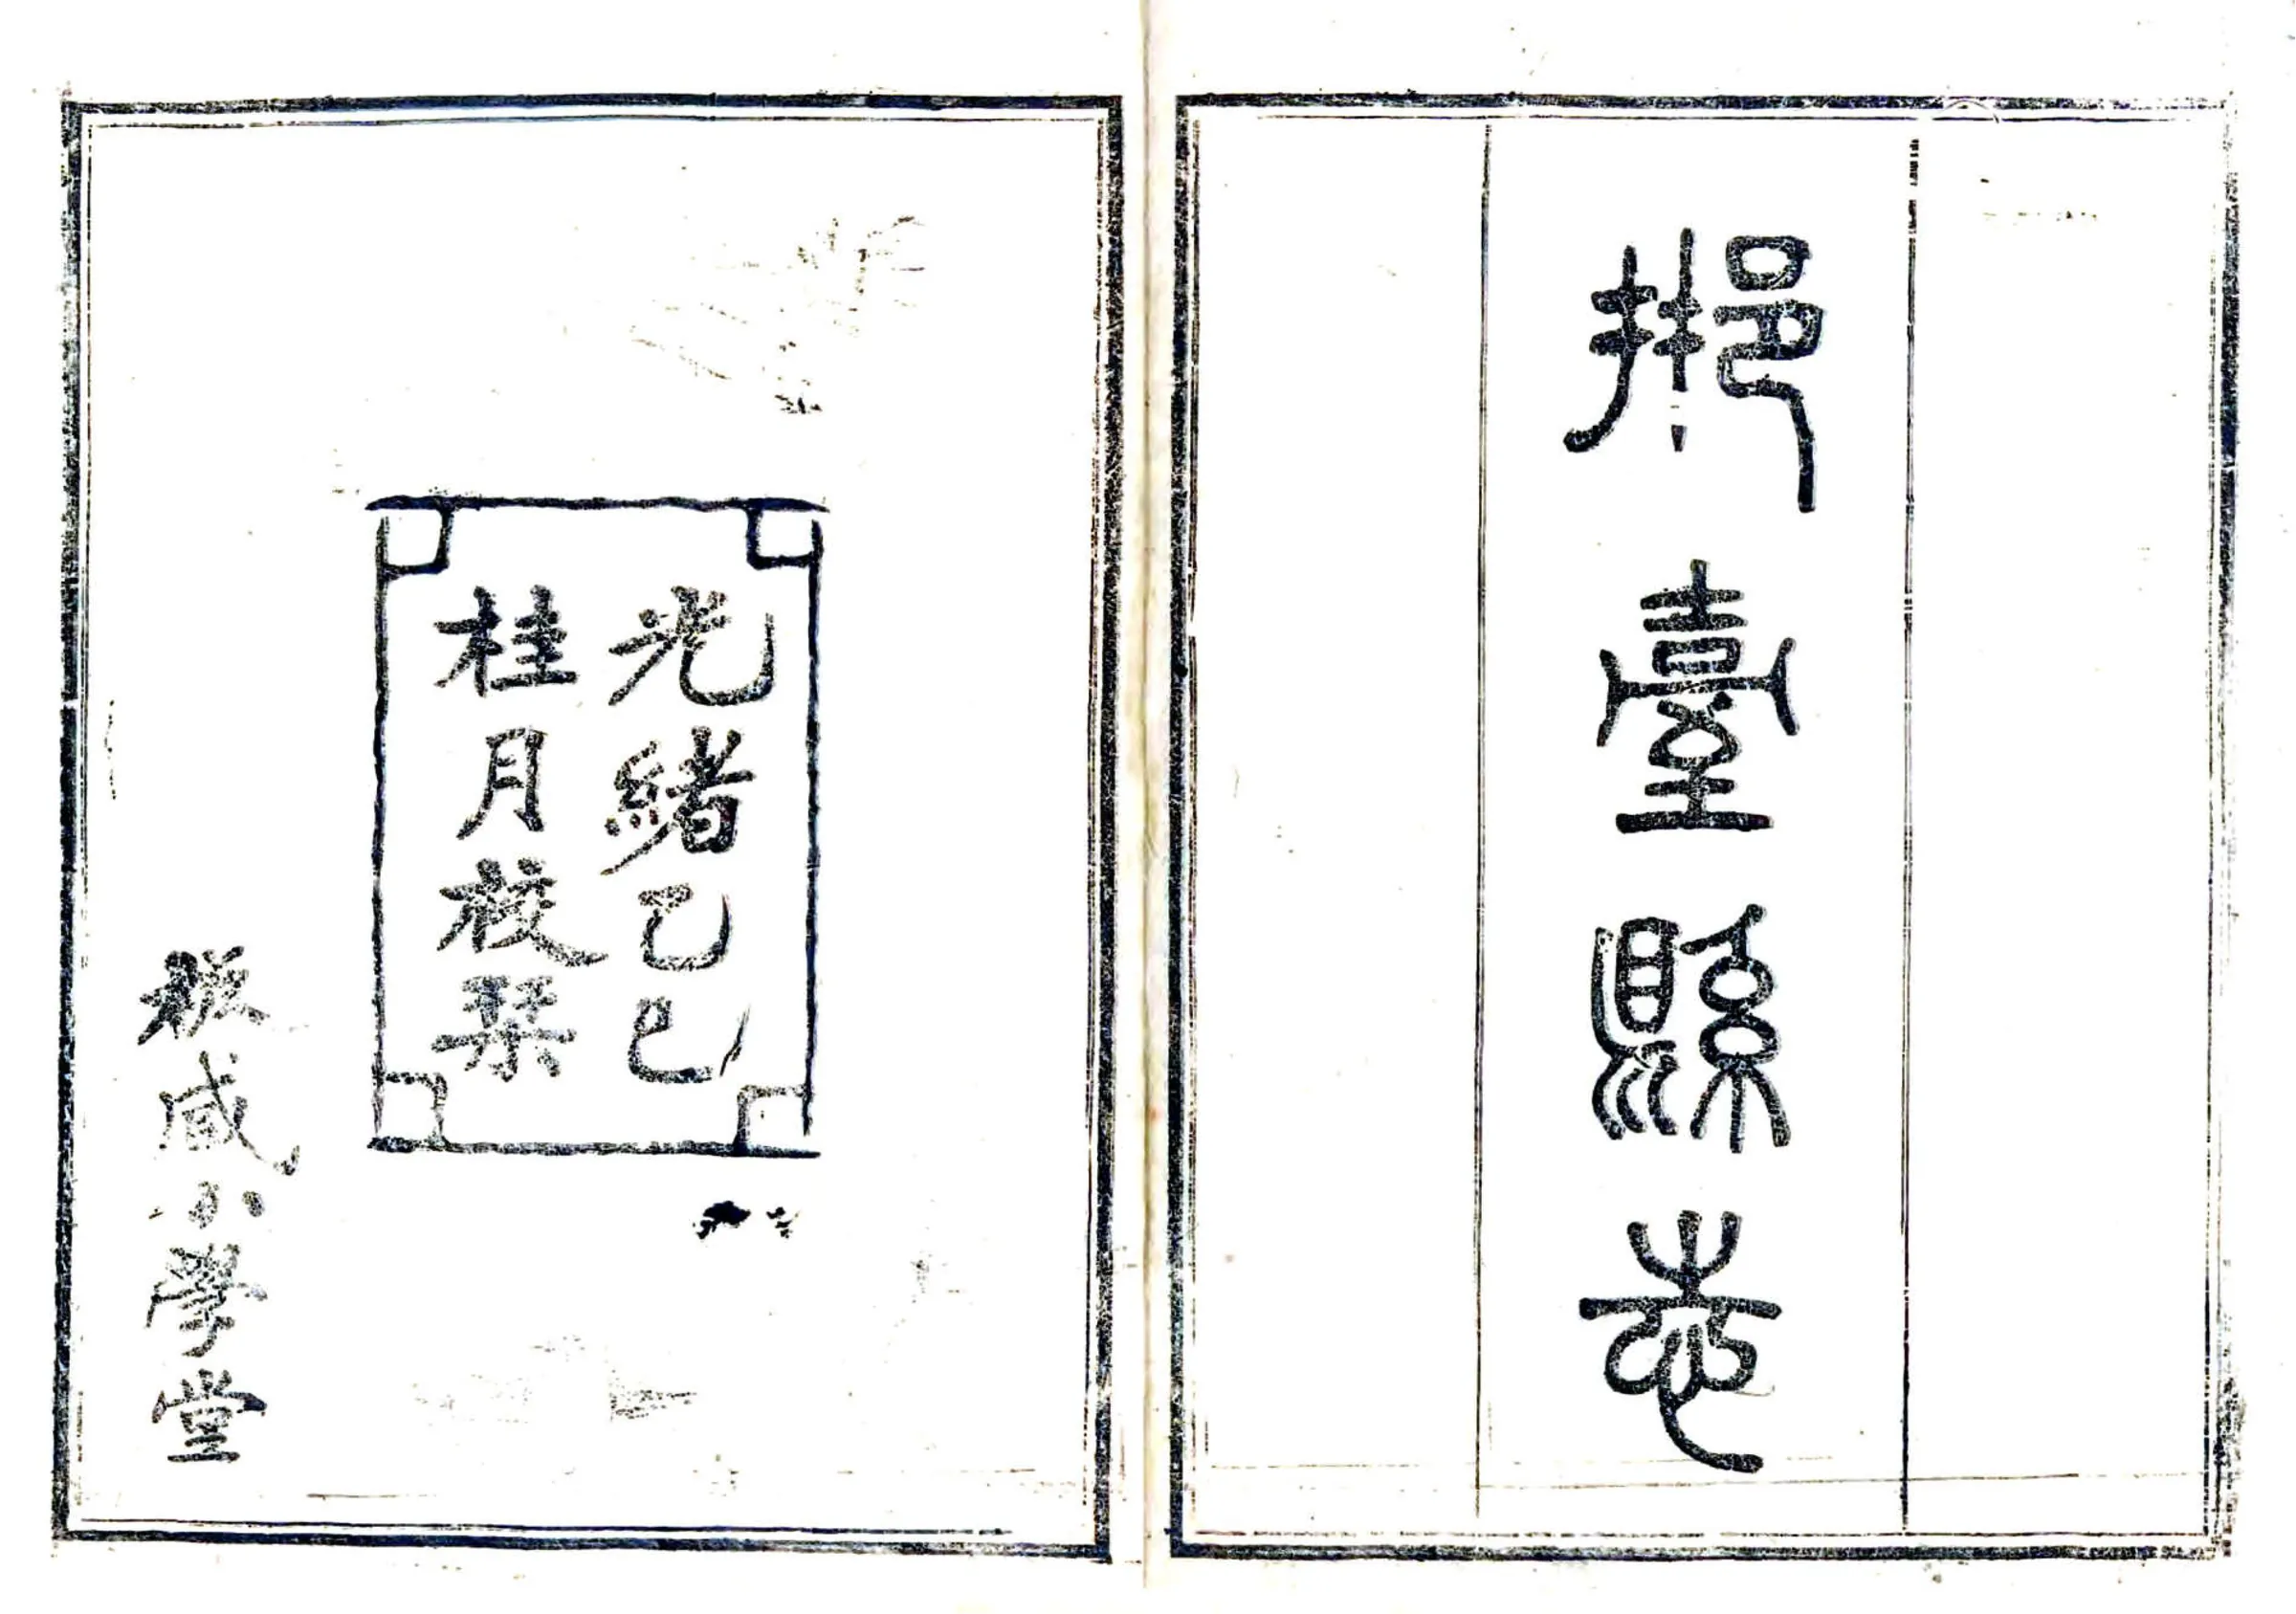 邢臺縣志
光緒乙巳
桂月校栞
板臧小學堂